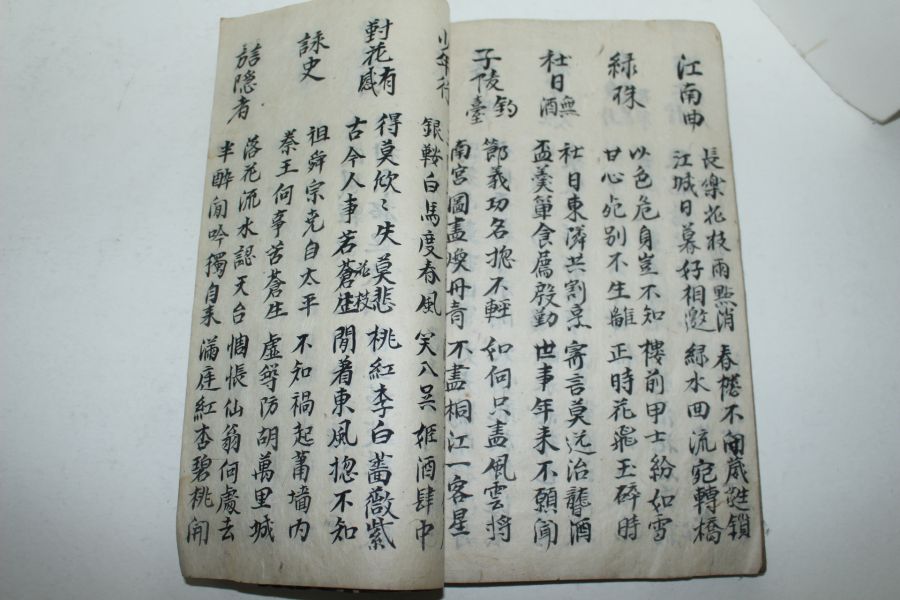 江南曲
長樂花枝雨點消 春樓不閉葳蕤鎖
江城日暮好相邀 綠水回流宛轉橋
綠珠
以色危身豈不知 樓前甲士紛如雪
甘心死別不生離 正時花飛玉碎時
社日無酒
社日東隣共割烹 寄言莫送治聾酒
盃羹簞食厲殷勤 世事年來不願聞
子陵釣臺
鄧義功名捴不輕 如何只盡風雲將
南宮圖畵煥丹青 不盡桐江一客星
少年行
銀鞍白馬度春風 笑入吴姬酒肆中
對花有感
得莫欣〻失莫悲 桃紅李白薔薇紫
古今人事若蒼生花枝 閒着東風捴不知
詠史
祖舜宗堯自太平 不知禍起蕭墻內
秦王何事苦蒼生 虛築防胡萬里城
訪隱者
落花流水認天台 惆悵仙翁何處去
半醉閒吟獨自来 滿庭紅杏碧桃開